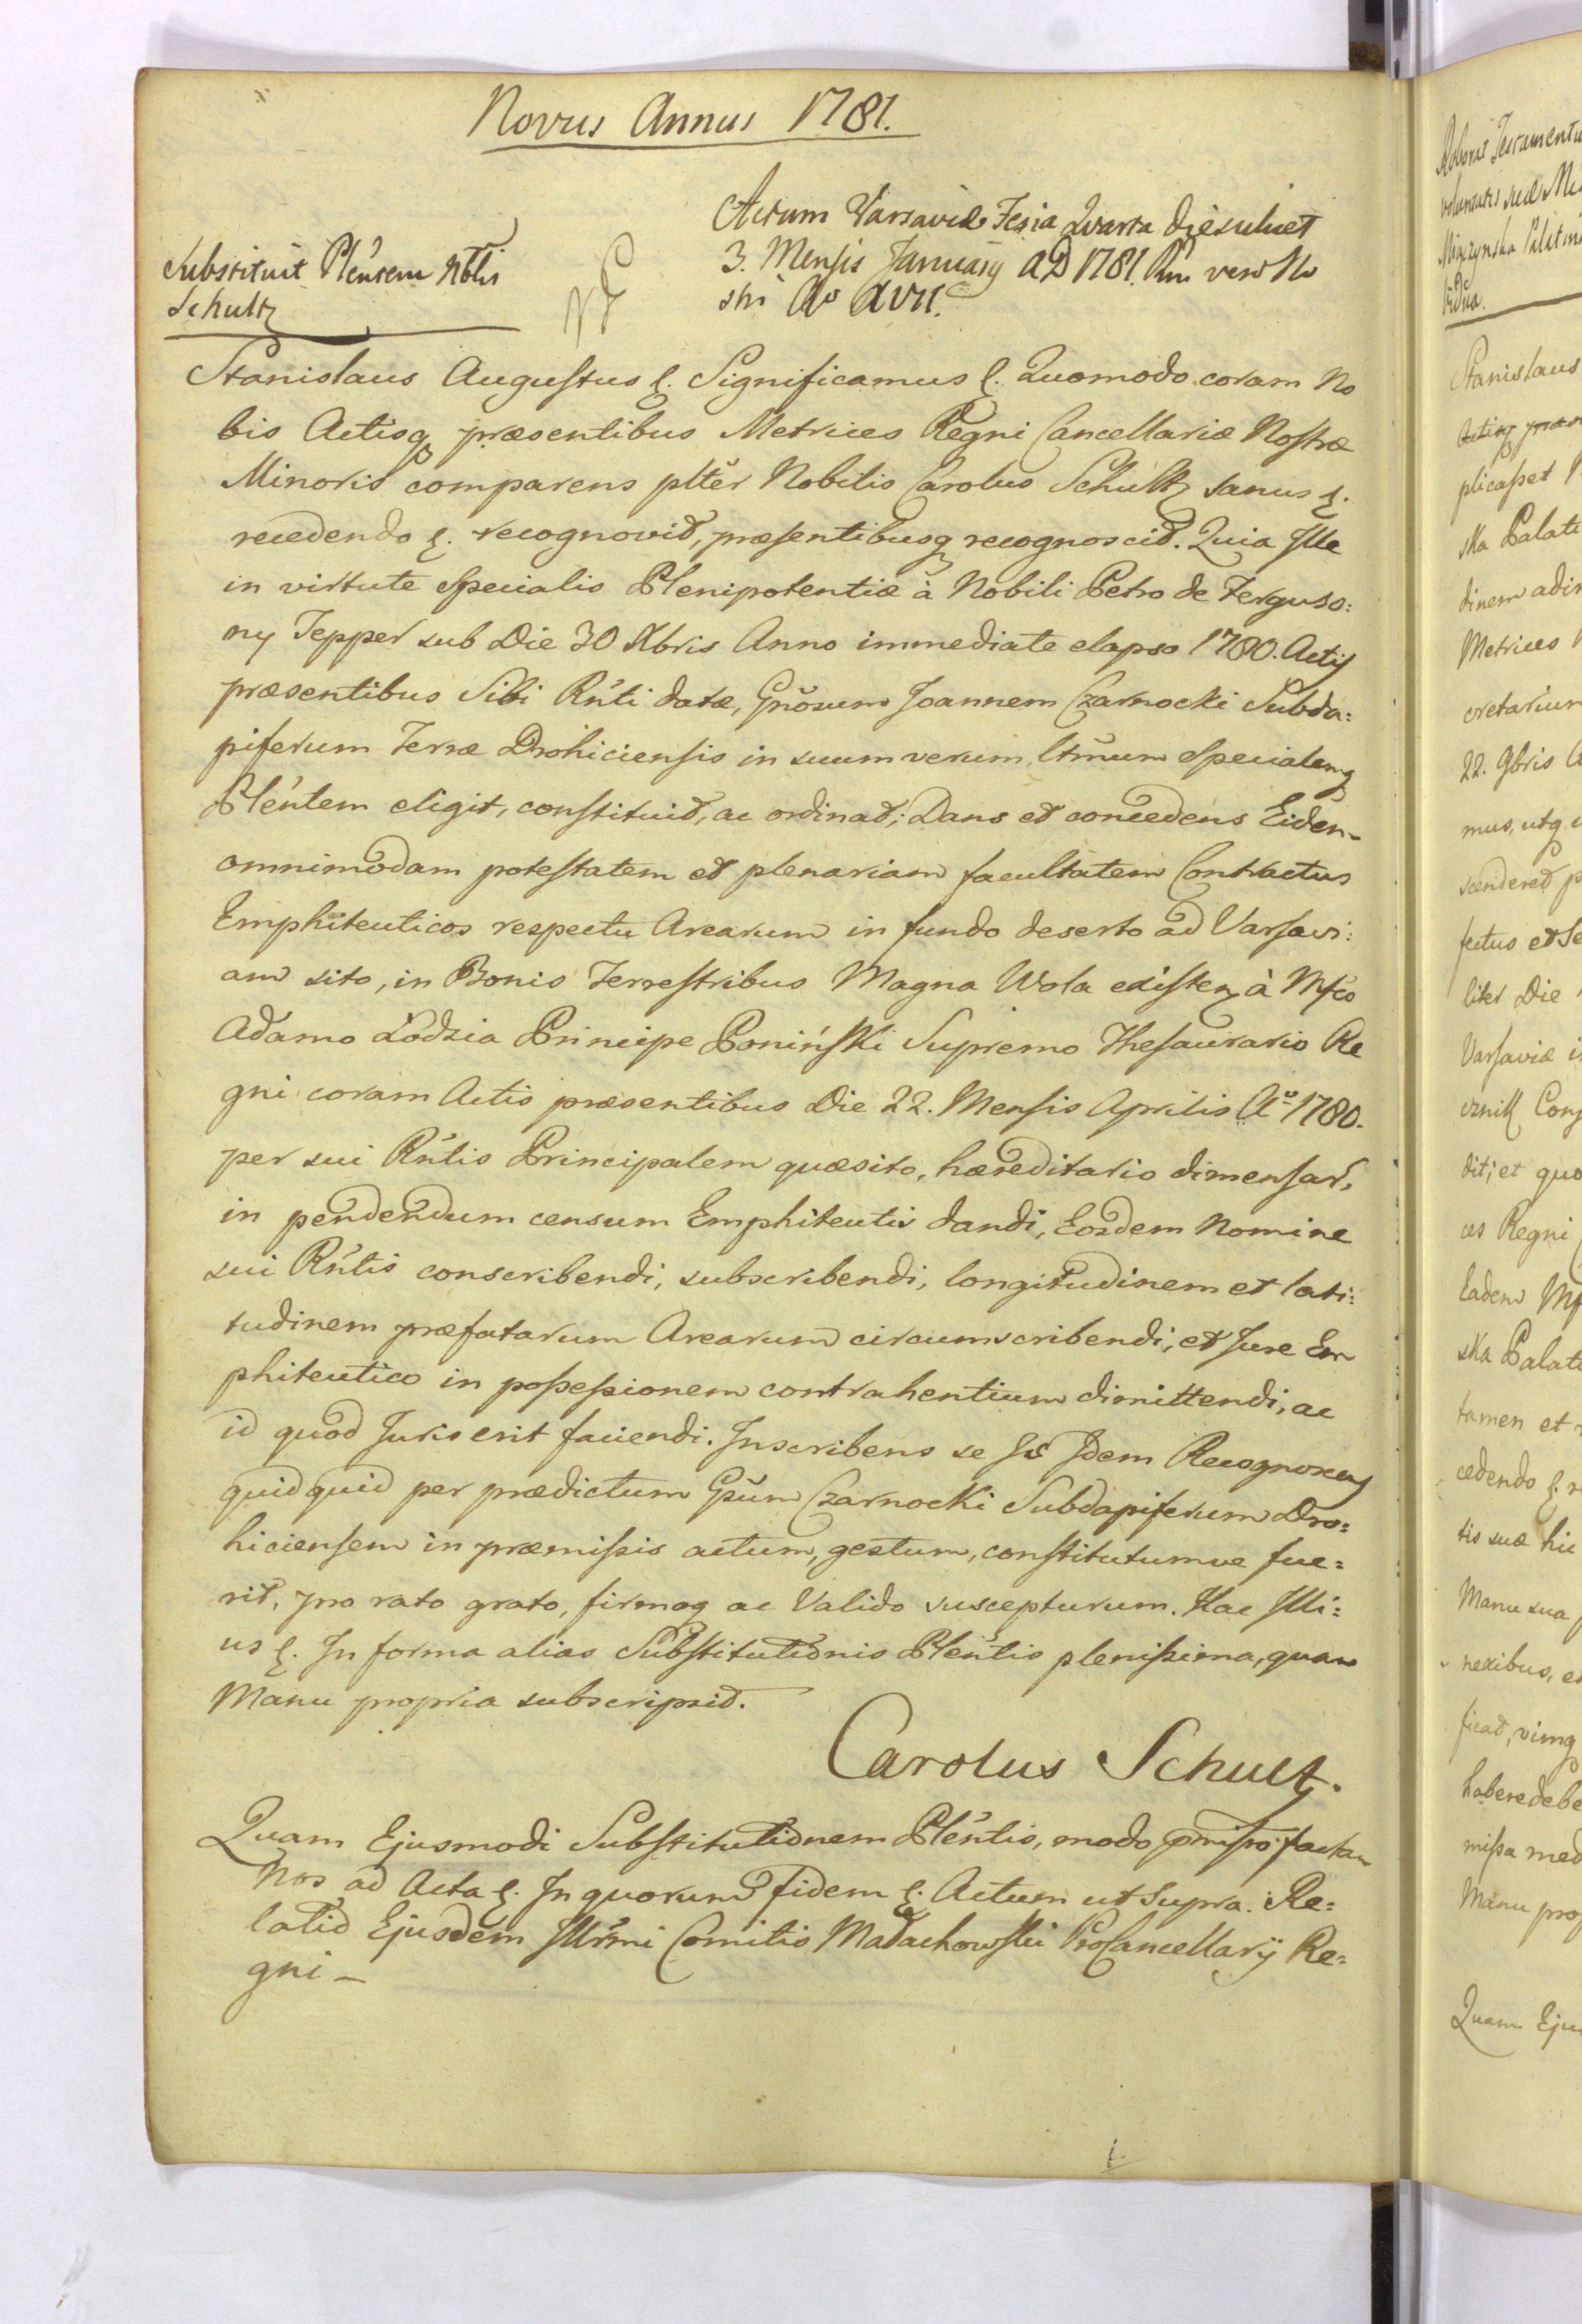 Novus Annus 1781.
Actum Varsaviæ Feria Quarta Die scilicet
3. Mensis January AD 1781. Rni vero No
stri Ao XVII.
Substituit Pleñtem Nblis
Schultz
Stanislaus Augustus &. Significamus &. Quomodo coram No
bis Actisq præsentibus Metrices Regni Cancellariæ Nostræ
Minoris comparens plter Nobilis Carolus Schultz sanus &.
recedendo &. recognovit, præsentibusq recognoscit. Quia Ille
in virtute specialis Plenipotentiæ à Nobili Petro de Ferguso:
ny Tepper sub Die 30 Xbris Anno immediate elapso 1780. Actis
præsentibus Sibi Rñti datæ, Gnõsum Joannem Czarnocki Subda:
piferum Terræ Drohiciensis in suum verum, ltmum specialemq
Pleñtem eligit, constituit, ac ordinat; Dans et concedens Eidem
omnimodam potestatem et plenariam facultatem Contractus
Emphiteuticos respectu Arearum in fundo deserto ad Varsavi:
am sito, in Bonis Terrestribus Magna Wola existen à Mfco
Adamo Łodzia Principe Poniński Supremo Thesaurario Re
gni coram Actis præsentibus Die 22. Mensis Aprilis Aº 1780.
per sui Rñtis Principalem quæsito, hæreditario dimensar,
in pendendum censum Emphiteutis dandi, Eosdem Nomine
sui Rñtis conscribendi, subscribendi, longitudinem et lati:
tudinem præfatarum Arearum circumscribendi, et Jure Em
phiteutico in possessionem contrahentium dimittendi, ac
id quod Juris erit faciendi. Inscribens se Idem Recognoscens
quidquid per prædictum Gsum Czarnocki Subdapiferum Dro:
hiciensem in præmissis actum, gestum, constitutumve fue:
rit, pro rato grato, firmoq ac Valido suscepturum. Hac Illi:
us &. In forma alias Substitutionis Pleñtis plenissima, quam
Manu propria subscripsit.
Carolus Schultz.
Quam Ejusmodi Substitutionem Pleñtis, modo præmisso factam
Nos ad Acta &. In quorum fidem &. Actum ut Supra. Re:
latio Ejusdem Illrmi Comitis Małachowski ProCancellarij Re:
gni –
Roborat Testamentu
voluntatis suæ
Stanislaus
Actisq præs
plicasset
ska Palati
dinem adim
Metrices
cretarium
22. 9bris
mus, utq
scenderet
fectus et Se
liter Die
Varsaviæ
cznik
dit; et quo
ces Regni
Eadem
ska Palati
tamen et
cedendo &. r
tis suæ hic
Manu sua
nexibus, e
ficat, vimq
habere debe
missa med
Manu prop
Quam Eju